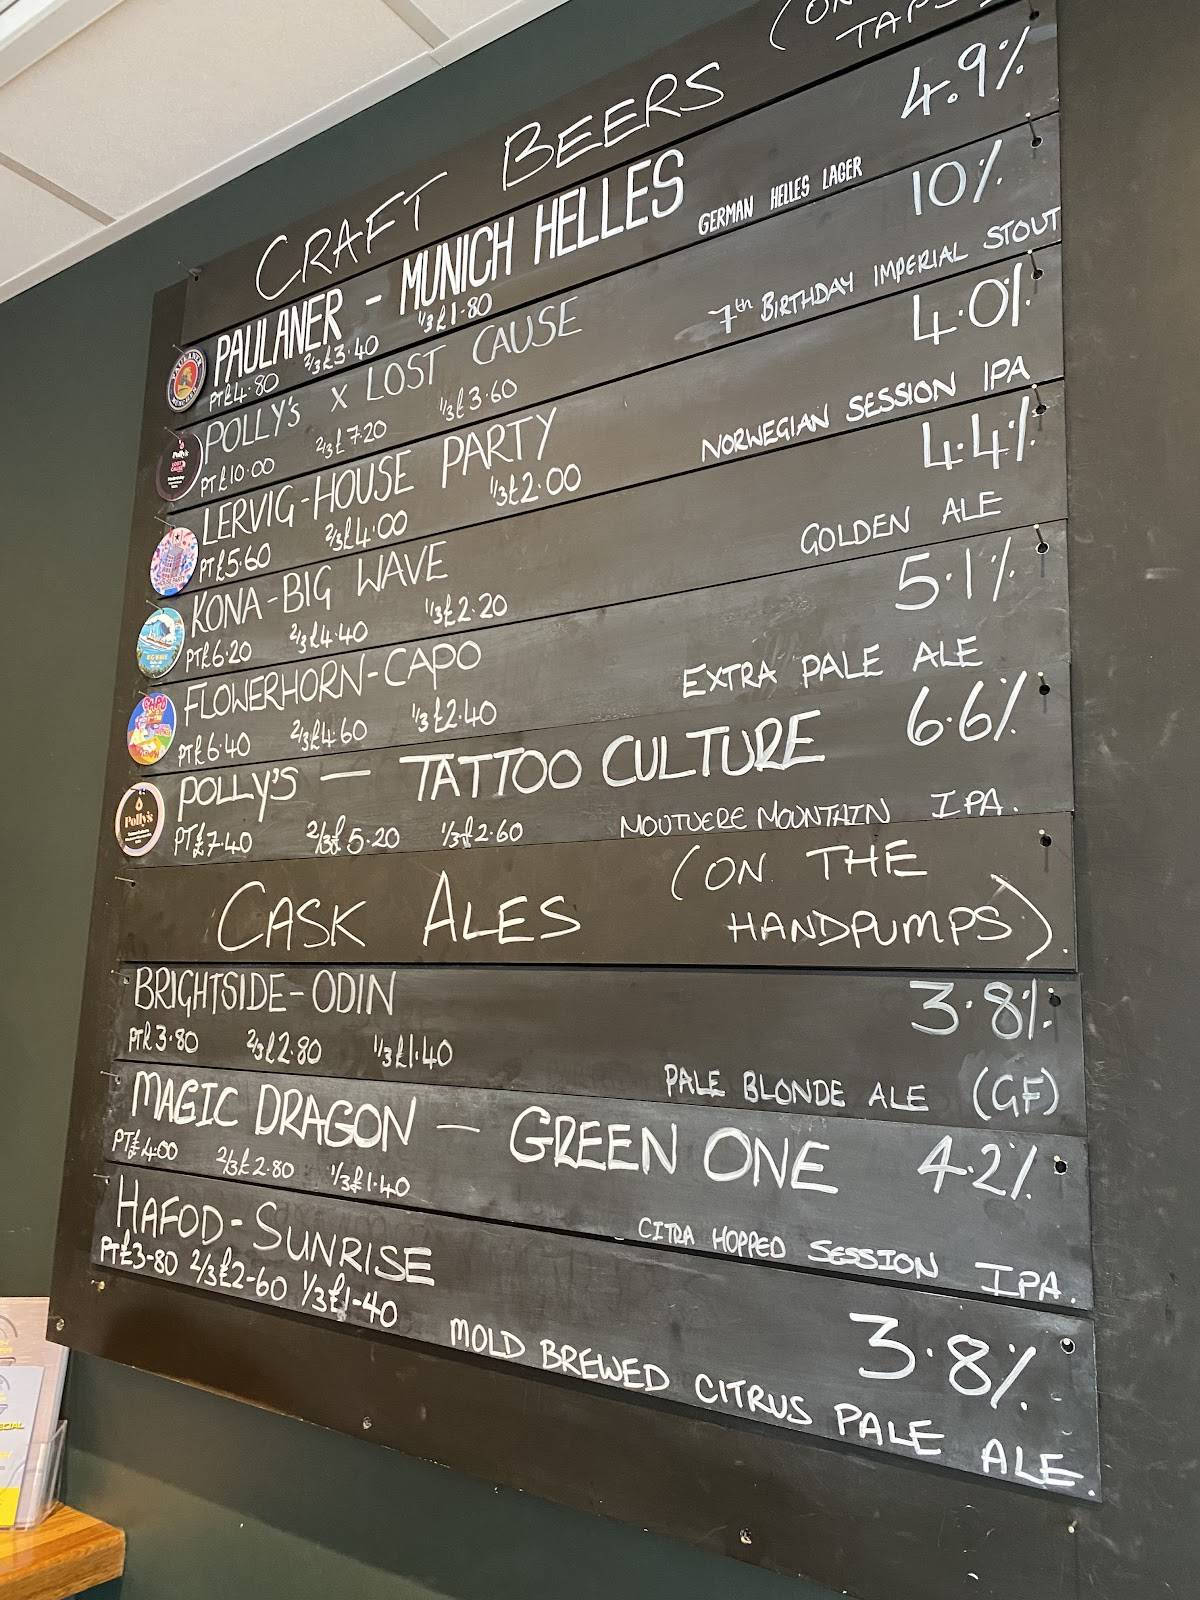 CRAFT BEERS (ON
TAPS
PAULANER - MUNICH HELLES 4.9%
PT£4.80 2/3£3.40 1/3£1.80 GERMAN HELLES LAGER
POLLY's x LOST CAUSE 10%
PT£10.00 2/3£7.20 1/3£3.60 7th BIRTHDAY IMPERIAL STOUT
LERVIG-HOUSE PARTY 4.0%
PT£5.60 2/3£4.00 1/3£2.00 NORWEGIAN SESSION IPA
KONA-BIG WAVE 4.4%
PT£6.20 2/3£4.40 1/3£2.20 GOLDEN ALE
FLOWERHORN-CAPO 5.1%
PT£6.40 2/3£4.60 1/3£2.40 EXTRA PALE ALE
POLLY'S — TATTOO CULTURE 6.6%
PT£7.40 2/3£5.20 1/3£2.60 MOUTUERE MOUNTAIN IPA.
CASK ALES (ON THE
HANDPUMPS).
BRIGHTSIDE-ODIN 3.8%
PT£3.80 2/3£2.80 1/3£1.40 PALE BLONDE ALE (GF)
MAGIC DRAGON — GREEN ONE 4.2%
PT£4.00 2/3£2.80 1/3£1.40 CITRA HOPPED SESSION IPA.
HAFOD-SUNRISE 3.8%
PT£3-80 2/3£2-60 1/3£1-40 MOLD BREWED CITRUS PALE ALE.
PAULANER
Polly's
LOST CAUSE
HOUSE PARTY
BIG WAVE
CAPO
Polly's